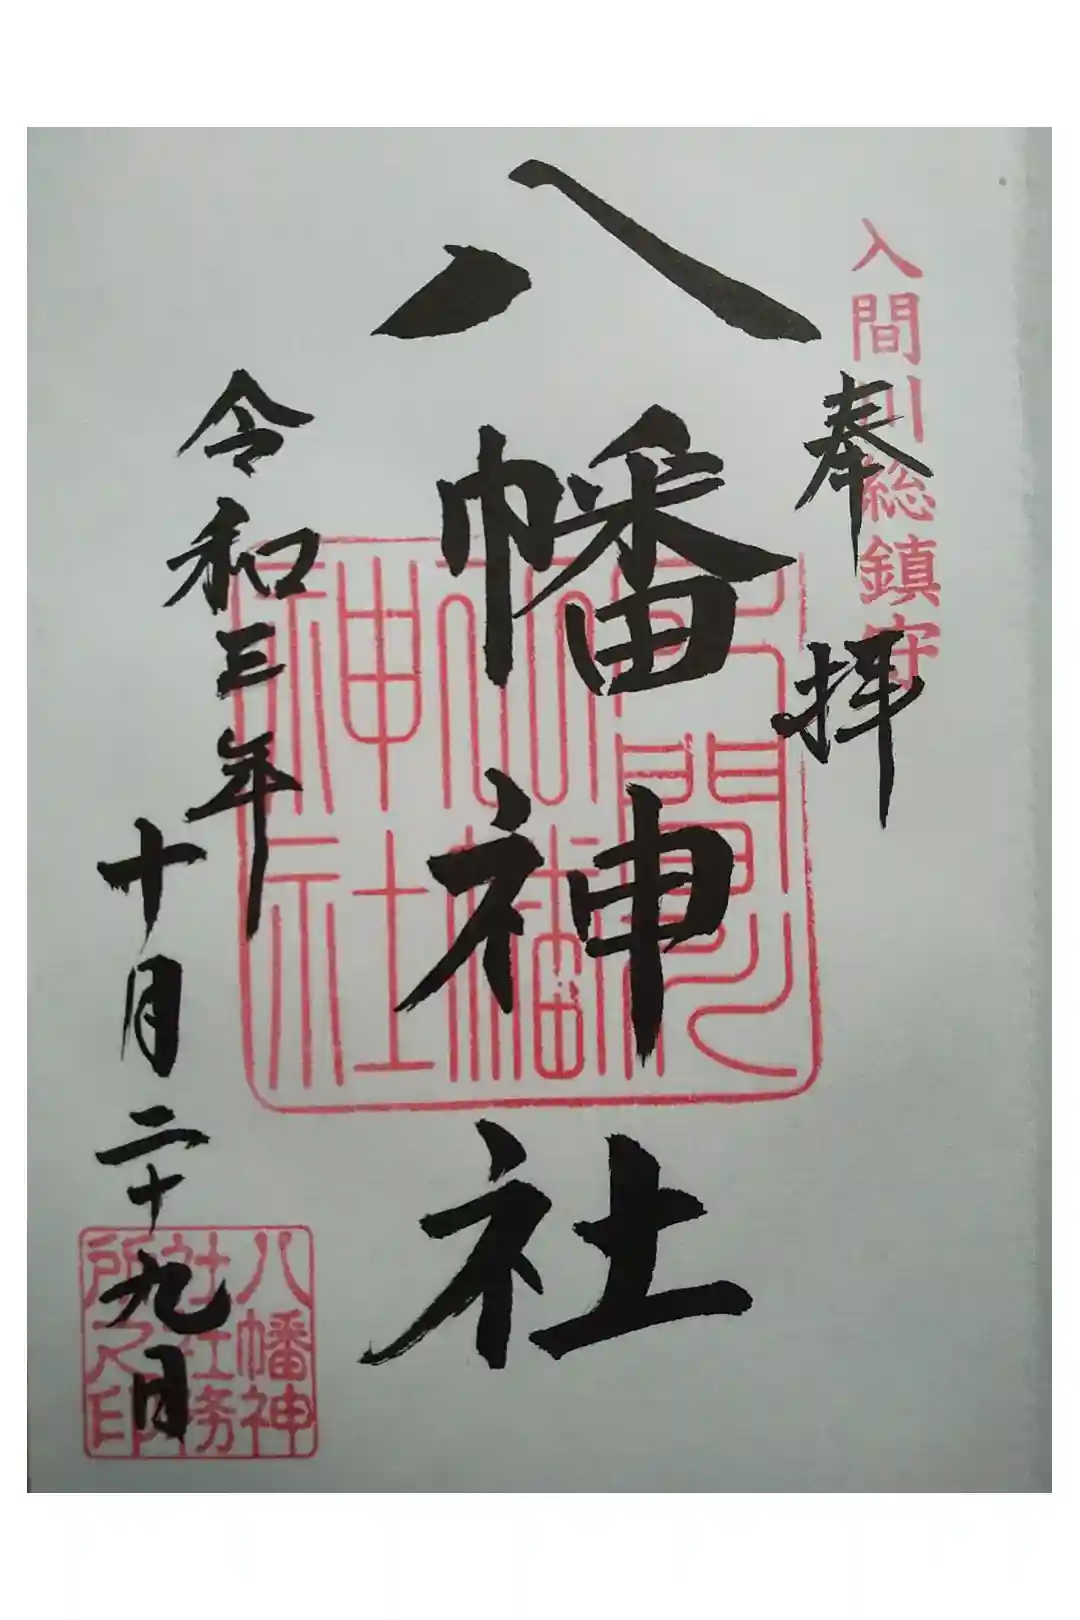 入間川総鎮守
奉拝
八幡神社
令和三年
十月二十九日
八幡神
社社務
所之印